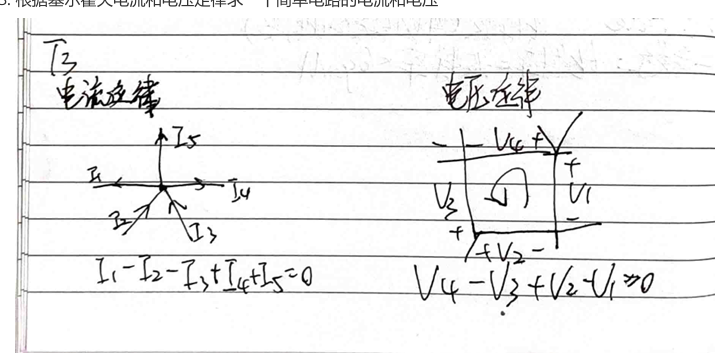 3. 根据基尔霍夫电流和电压定律求一个简单电路的电流和电压
T3
电流定律
电压定律
I5
I1
I4
I2
I3
I1-I2-I3+I4+I5=0
- - V4 +
+
V3
V1
-
+
+V2-
V4-V3+V2-V1=0